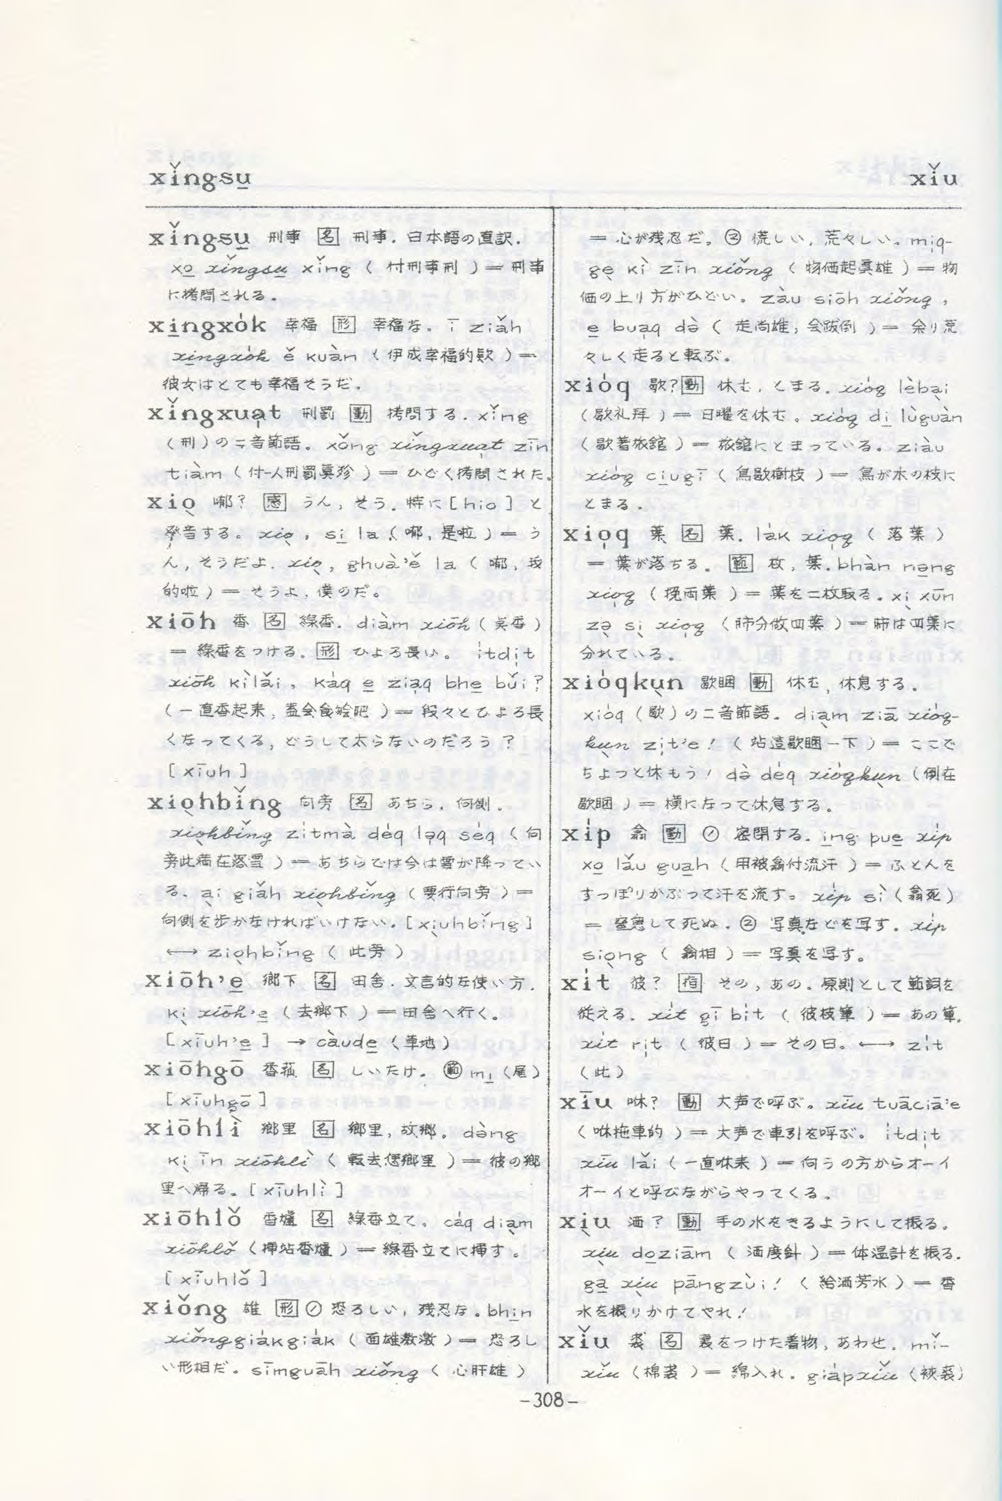 xǐngsu̱
xǐu
xǐngsu̱ 刑事 [名] 刑事. 日本語の直訳.
xo̱ xǐngsu̱ xǐng ( 付刑事刑 ) = 刑事
に拷問される.
xi̱ngxók 幸福 [形] 幸福な. ī ziǎh
xi̱ngxók ě kuàn ( 伊成幸福的款 ) =
彼女はとても幸福そうだ.
xǐngxua̱t 刑罰 [動] 拷問する. xǐng
(刑) の二音節語. xǒng xǐngxua̱t zīn
tiàm ( 付人刑罰眞殄 ) = ひどく拷問された.
xio̱ 唹? [感] うん, そう. 特に [hio] と
発音する。 xio̱, si̱ la ( 唹, 是啦 ) = う
ん, そうだよ. xio̱, ghuà'ě la ( 唹, 我
的啦 ) = そうよ, 僕のだ。
xiōh 香 [名] 線香. diàm xiōh ( 点香 )
= 線香をつける. [形] ひょろ長い。 ìtdi̍t
xiōh kìlǎi, káq e̱ zia̱q bhe̱ bǔi?
( 一直香起来, 盍会食𣍐肥 ) = 段々とひょろ長
くなってくる, どうして太らないのだろう?
[xīuh]
xio̱hbǐng 向旁 [名] あちら, 向側.
xio̱hbǐng zítmà déq la̱q séq ( 向
旁此満在落雪 ) = あちらでは今は雪が降ってい
る. a̱i giǎh xio̱hbǐng ( 要行向旁 ) =
向側を歩かなければいけない. [xi̱uhbǐng]
←→ zio̱hbǐng ( 此旁 )
xiōh'e̱ 鄉下 [名] 田舎. 文言的な使い方.
kì xiōh'e̱ ( 去鄉下 ) = 田舎へ行く。
[xīuh'e̱] → càude̱ (草地)
xiōhgō 香菰 [名] しいたけ。 ㊓ mi̱ (尾)
[xīuhgō]
xiōhlì 鄉里 [名] 鄉里, 故郷. dàng
kì īn xiōhlì ( 転去𪜶鄉里 ) = 彼の郷
里へ帰る。[xīuhlì]
xiōhlǒ 香爐 [名] 線香立て。 cáq diàm
xiōhlǒ (挿坫香爐) = 線香立てに挿す。
[xīuhlǒ]
xiǒng 雄 [形] ① 恐ろしい, 残忍な. bhi̱n
xiǒnggiàkgiàk ( 面雄激激 ) = 恐ろし
い形相だ. sīmguāh xiǒng ( 心肝雄 )
= 心が残忍だ。② 慌しい, 荒々しい. mi̍q-
ge̱ kì zīn xiǒng ( 物価起眞雄 ) = 物
価の上り方がひどい。 zàu siōh xiǒng,
e̱ bua̍q dò ( 走尚雄, 会跋倒 ) = 余り荒
々しく走ると転ぶ。
xióq 歇? [動] 休む, とまる. xióq lèba̱i
( 歇礼拜 ) = 日曜を休む。 xióq di̱ lùguàn
( 歇著旅館 ) = 旅館にとまっている。 ziàu
xióq ci̱ugī ( 鳥歇樹枝 ) = 鳥が木の枝に
とまる.
xio̍q 葉 [名] 葉. la̍k xio̍q ( 落葉 )
= 葉が落ちる. [量] 枚, 葉. bhàn nn̄g
xio̍q ( 挽両葉 ) = 葉を二枚取る. xì xūn
zò sì xio̍q ( 肺分做四葉 ) = 肺は四葉に
分れている。
xióqkùn 歇睏 [動] 休む, 休息する.
xióq (歇) の二音節語. diàm ziā xióq-
kùn zi̍t'e! ( 坫這歇睏一下 ) = ここで
ちょっと休もう! dò déq xióqkùn ( 倒在
歇睏 ) = 横になって休息する。
xíp 翕 [動] ① 密閉する. i̱ng pue̱ xíp
xo̱ lǎu gua̱h ( 用被翕付流汗 ) = ふとんを
すっぽりかぶって汗を流す。 xíp sì ( 翕死 )
= 窒息して死ぬ. ② 写真などを写す. xíp
siòng ( 翕相 ) = 写真を写す。
xít 彼? [指] その, あの. 原則として範詞を
従える. xít gī bít ( 彼枝筆 ) = あの筆.
xít ri̍t ( 彼日 ) = その日。 ←→ zít
(此)
xīu 咻? [動] 大声で呼ぶ. xīu tuāciā'e
( 咻拖車的 ) = 大声で車引を呼ぶ。 ítdi̍t
xīu lǎi ( 一直咻来 ) = 向うの方からオーイ
オーイと呼びながらやってくる。
xi̱u 洒? [動] 手の水をきるようにして振る.
xi̱u do̱ziām ( 洒度針 ) = 体温計を振る.
gā xi̱u pāngzùi! ( 給洒芳水 ) = 香
水を振りかけてやれ!
xǐu 裘 [名] 裏をつけた着物, あわせ. mǐ-
xǐu ( 棉裘 ) = 綿入れ. giápxǐu ( 裌裘 )
-308-